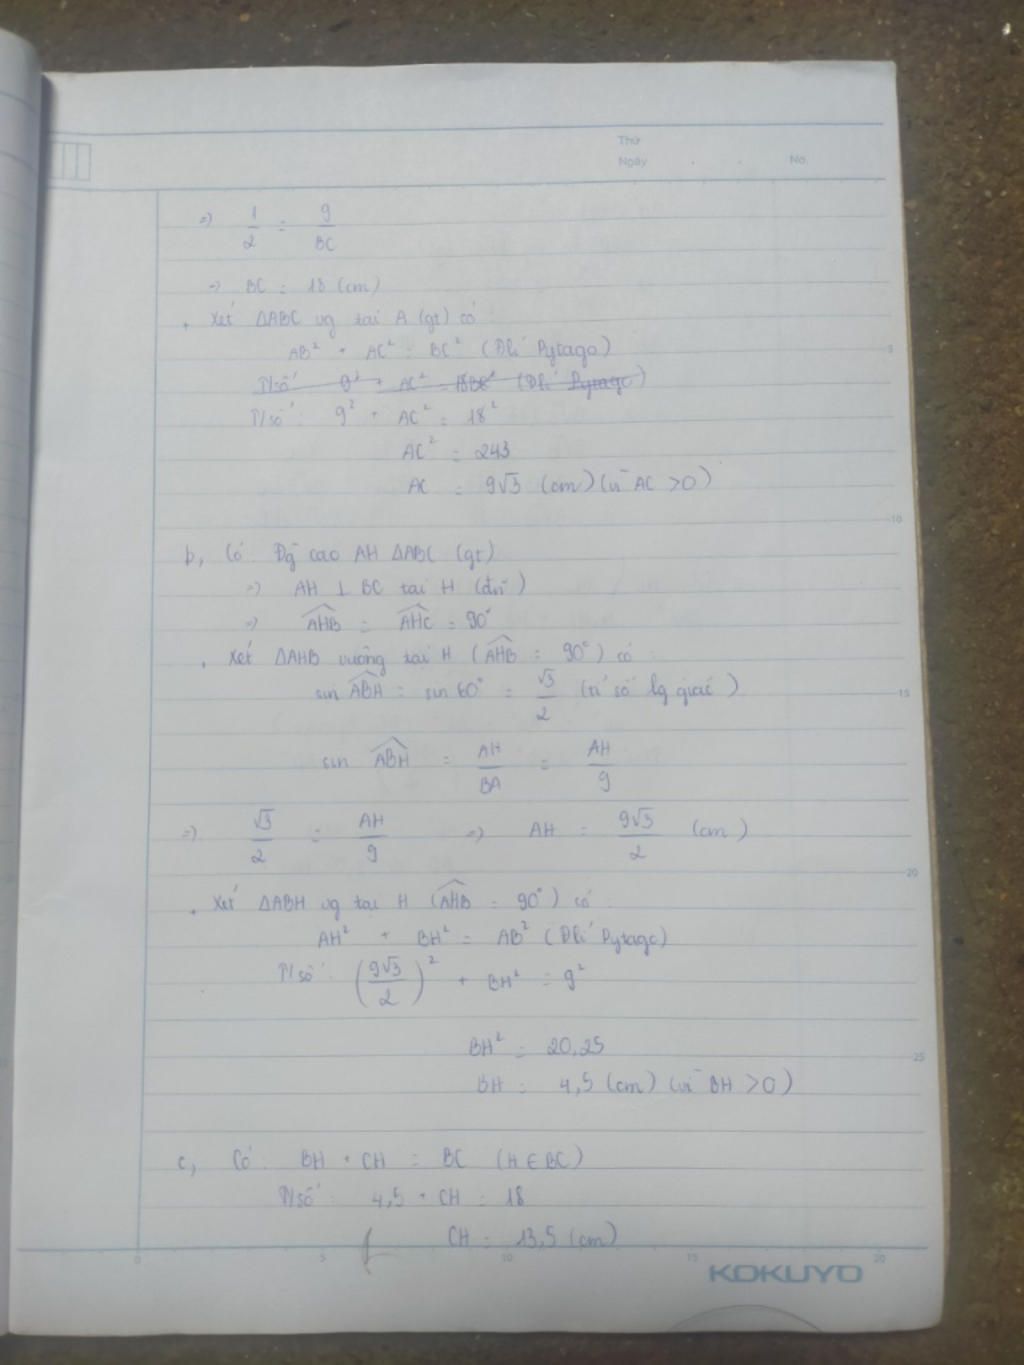 Thứ
Ngày . . No.
=> 1/2 = 9/BC
=> BC = 18 (cm)
+ Xét ΔABC vg tại A (gt) có
AB² + AC² = BC² (Đlí Pytago)
T/số: 9² + AC² = 18²
AC² = 243
AC = 9√3 (cm) (vì AC > 0)
b, Có: Đg cao AH ΔABC (gt)
=> AH ⊥ BC tại H (đn)
=> AHB = AHC = 90°
. Xét ΔAHB vuông tại H (AHB = 90°) có:
sin ABH = sin 60° = √3/2 (tỉ số lg giác)
sin ABH = AH/BA = AH/9
=> √3/2 = AH/9 => AH = 9√3/2 (cm)
. Xét ΔABH vg tại H (AHB = 90°) có:
AH² + BH² = AB² (Đlí Pytago)
T/số: (9√3/2)² + BH² = 9²
BH² = 20,25
BH = 4,5 (cm) (vì BH > 0)
c, Có: BH + CH = BC (H ∈ BC)
T/số: 4,5 + CH = 18
CH = 13,5 (cm)
5
10
15
20
25
0 5 10 15 20
KOKUYO